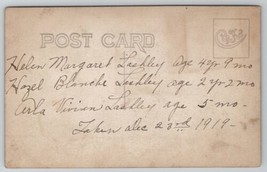 POST CARD
Helen Margaret Lashley age 4 yr 9 mo
Hazel Blanche Lashley age 2 yr 2 mo
Arla Vivian Lashley age 5 mo-
Taken Dec 23rd 1919-